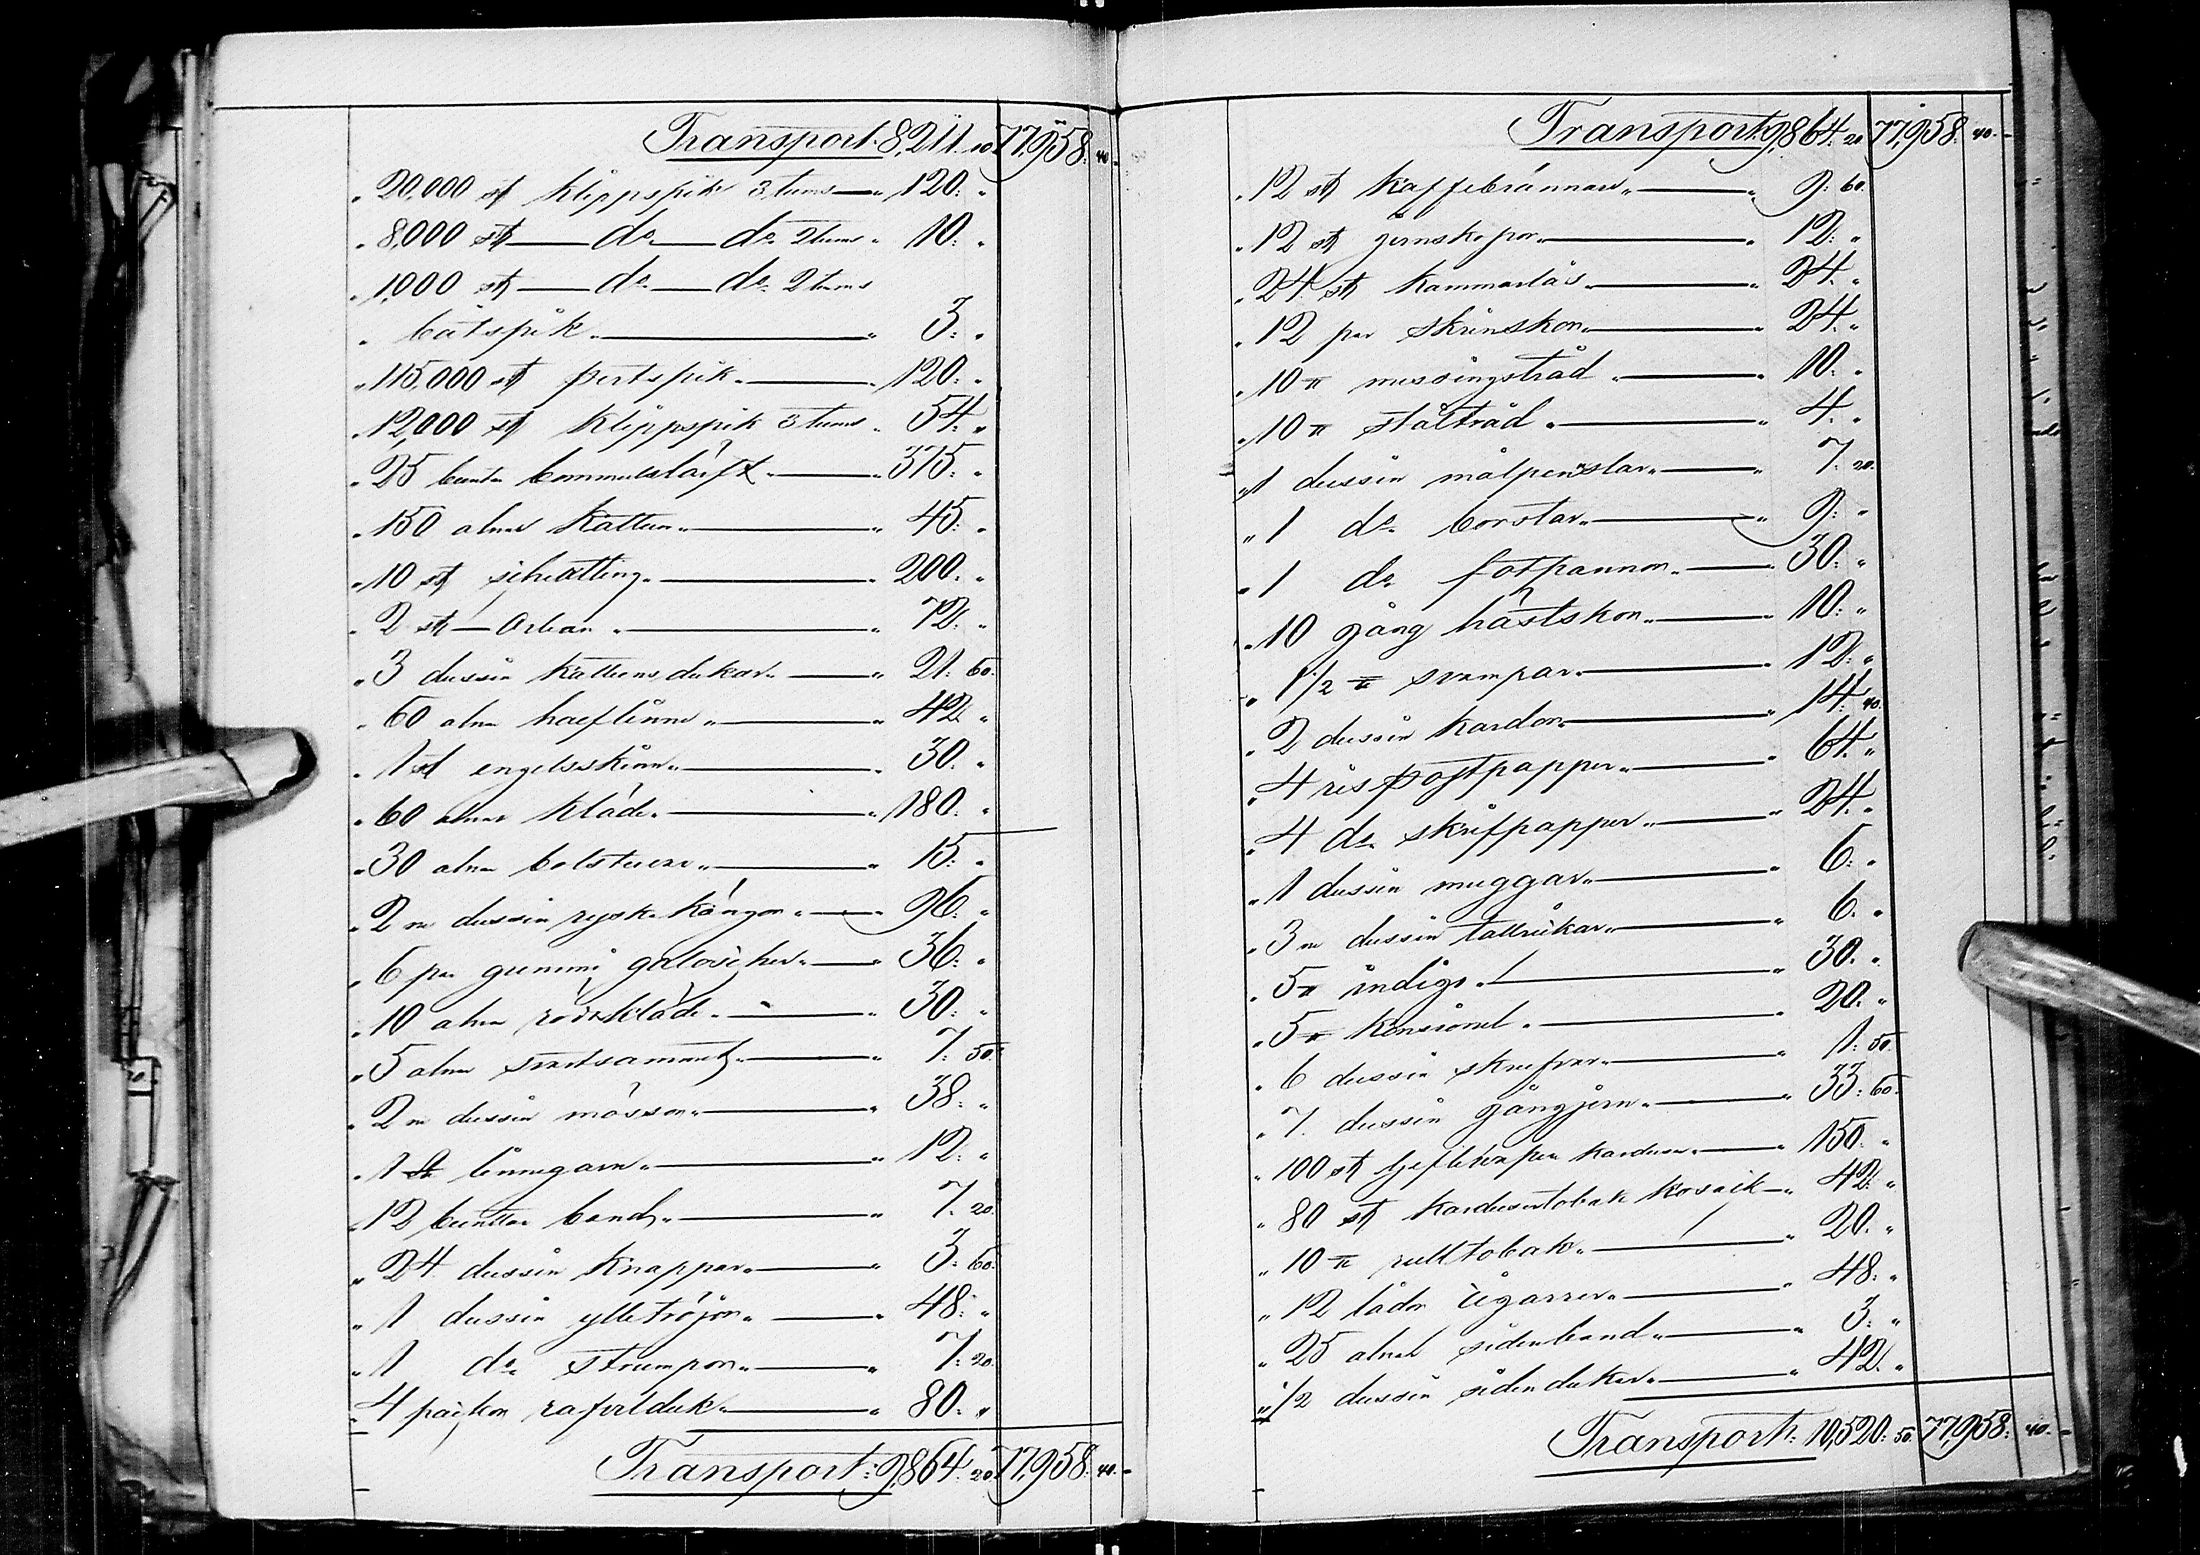 Transport: 8,211. 10 77,958: 40.
„ 20,000 st klippspik 3 tums — „ 120: „
„ 8,000 st — do — do 2 tums „ 10: „
„ 1,000 st — do — do 2 tums
„ båtspik „ — „ 3: „
„ 115,000 st pertspik „ — „ 120: „
„ 12,000 st klippspik 3 tums „ 54: „
„ 25 bunta bommulslärft „ — „ 375: „
„ 150 alnar kattun „ — „ 45: „
„ 10 st schirtting „ — „ 200: „
„ 2 st — Orlean „ — „ 72: „
„ 3 dussin kattuns dukar „ — „ 21: 60.
„ 60 alnar haflinne „ — „ 42: „
„ 1 st engelsskinn „ — „ 30: „
„ 60 alnar kläde „ — „ 180: „
„ 30 alnar bolstuerr „ — „ 15: „
„ 2 dussin ryska kängor „ — „ 96: „
„ 6 par gummi galoscher „ — „ 36: „
„ 10 alnar rödt kläde „ — „ 30: „
„ 5 alnar svartsammet „ — „ 7: 50.
„ 2 dussin mössor „ — „ 38: „
„ 1 linnegarn „ — „ 12: „
„ 12 bunttar band „ — „ 7: 20.
„ 24 dussin knappar „ — „ 3: 60.
„ 1 dussin ylletröjor „ — „ 48: „
„ 1 do strumpor „ — „ 7: 20.
„ 4 päckor rafvelduk „ — „ 80: „
Transport: 9,864. 20 77,958: 40.
Transport 9,864: 20 77,958: 40.
„ 12 st kaffebrännare „ — „ 9: 60.
„ 12 st jernskopor „ — „ 12: „
„ 24 st kammarlås „ — „ 24: „
„ 12 par skrinskor „ — „ 24: „
„ 10 ℔ messingstråd „ — „ 10: „
„ 10 ℔ ståltråd „ — „ 4: „
„ 1 dussin målpenslar „ — „ 7: 20.
„ 1 do borstar „ — „ 9: „
„ 1 do fotpannor „ — „ 30: „
„ 10 gång hästskor „ — „ 10: „
„ 1/2 ℔ svampar „ — „ 12: „
„ 2 dussin kardor „ — „ 14: 40.
„ 4 ris postpapper „ — „ 64: „
„ 4 do skrifpapper „ — „ 24: „
„ 1 dussin muggar „ — „ 6: „
„ 3 dussin tallrikar „ — „ 6: „
„ 5 ℔ indigo „ — „ 30: „
„ 5 ℔ konsionel „ — „ 20: „
„ 6 dussin skrufvar „ — „ 1: 50.
„ 7 dussin gångjern „ — „ 33: 60.
„ 100 st kardusen „ — „ 150: „
„ 80 st kardusertobak — „ 42: „
„ 10 ℔ rulltobak „ — „ 20: „
„ 12 lådor sigarrer „ — „ 48: „
„ 25 alnar sidenband „ — „ 3: „
„ 1/2 dussin sidendukar „ — „ 42: „
Transport: 10,520: 50. 77,958: 40.